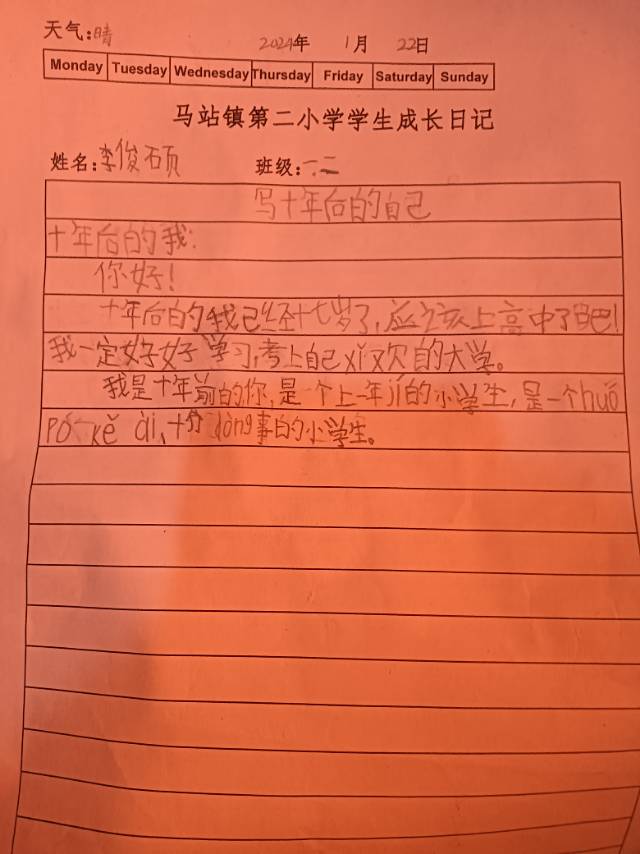 天气:晴 2024年 1月 22日
Monday Tuesday Wednesday Thursday Friday Saturday Sunday
马站镇第二小学学生成长日记
姓名:李俊硕 班级:一.二
写十年后的自己
十年后的我:
你好!
十年后的我已经十七岁了,应该上高中了吧!
我一定好好学习,考上自己xǐ欢的大学。
我是十年前的你,是一个上一年jí的小学生,是一个huó
pō kě ài、十分dǒng事的小学生。